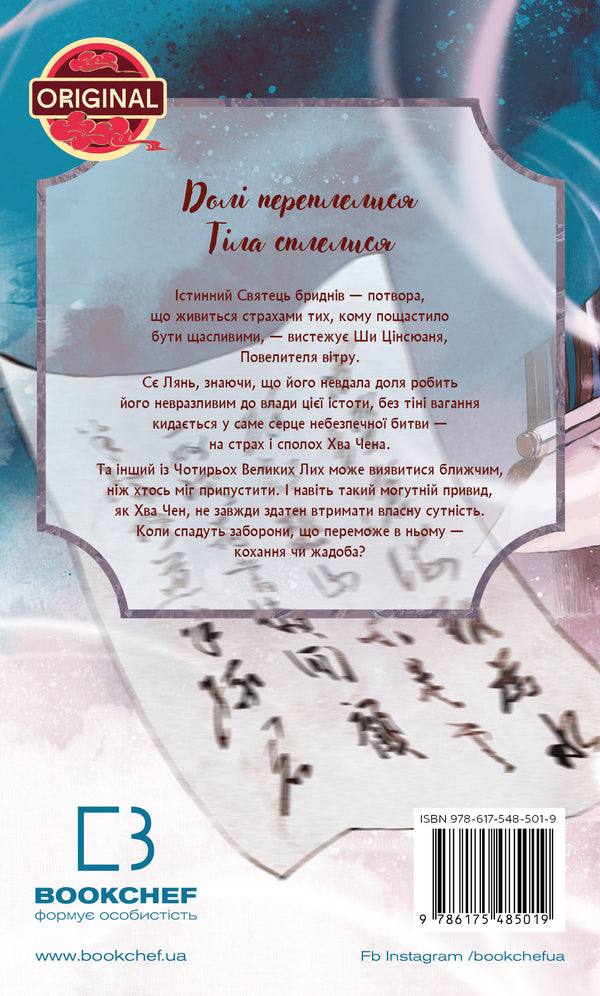 ORIGINAL
Долі переплелися
Тіла сплелися
Істинний Святець бриднів — потвора,
що живиться страхами тих, кому пощастило
бути щасливими, — вистежує Ши Цінсюаня,
Повелителя вітру.
Сє Лянь, знаючи, що його невдала доля робить
його невразливим до влади цієї істоти, без тіні вагання
кидається у саме серце небезпечної битви —
на страх і сполох Хва Чена.
Та інший із Чотирьох Великих Лих може виявитися ближчим,
ніж хтось міг припустити. І навіть такий могутній привид,
як Хва Чен, не завжди здатен втримати власну сутність.
Коли спадуть заборони, що переможе в ньому —
кохання чи жадоба?
BOOKCHEF
формує особистість
www.bookchef.ua
ISBN 978-617-548-501-9
9 786175 485019
Fb Instagram /bookchefua